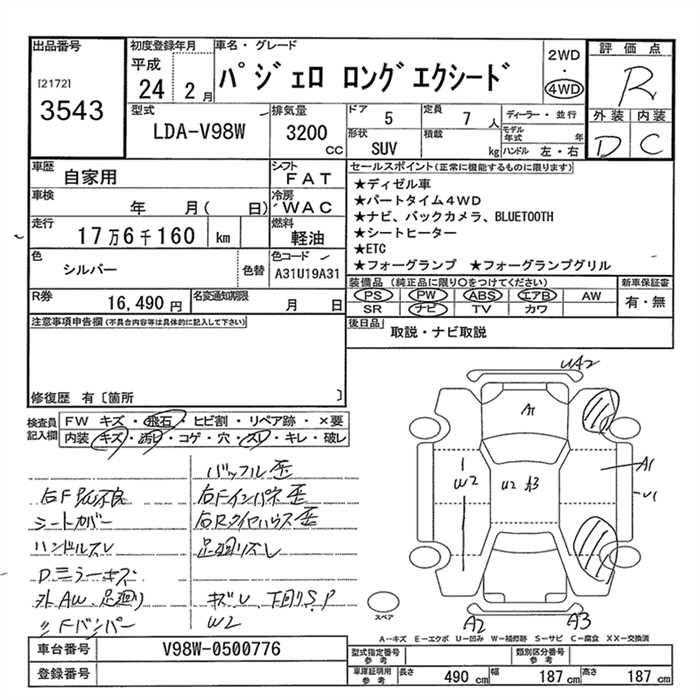 出品番号
[2172]
3543
初度登録年月
平成
24 2月
車名・グレード
パジェロ ロングエクシード
2WD
・
4WD
評価点
R
外装 内装
D C
型式
LDA-V98W
排気量
3200
cc
ドア 5
定員 7 人
形状 SUV
積載 kg
ディーラー・並行
モデル年式 年
ハンドル 左・右
車歴 自家用
シフト FAT
車検 年 月( 日)
冷房 WAC
走行 17万6千160 km
燃料 軽油
色 シルバー
色替
色コード A31U19A31
R券 16,490円
名変通知期限 月 日
セールスポイント(正常に機能するものに限ります)
★ディゼル車
★パートタイム4WD
★ナビ、バックカメラ、BLUETOOTH
★シートヒーター
★ETC
★フォーグランプ ★フォーグランプグリル
装備品(純正品に限り○をつけてください)
PS PW ABS エアB AW
SR ナビ TV カワ
新車保証書
有・無
後日品 取説・ナビ取説
注意事項申告欄(不具合内容等は具体的に記入して下さい)
修復歴 有[箇所 ]
検査員記入欄
FW キズ・飛石・ヒビ割・リペア跡・×要
内装 キズ・汚れ・コゲ・穴・スレ・キレ・破レ
バックル歪
右Fインパネ歪
シートカバー
右Rタイヤハウス歪
ハンドルスレ
足廻リスレ
Dミラーキズ
外AW、足廻リ
Fバンパー
W2
UA2
A1
A1
W2
U2 A3
U1
A2
A3
スペア
A－キズ E－エクボ U－凹み W－補修跡 S－サビ C－腐食 XX－交換済
車台番号 V98W-0500776
登録番号
型式指定番号
参考
類別区分番号
参考
車庫証明用
参考
長さ 490 cm 幅 187 cm 高さ 187 cm